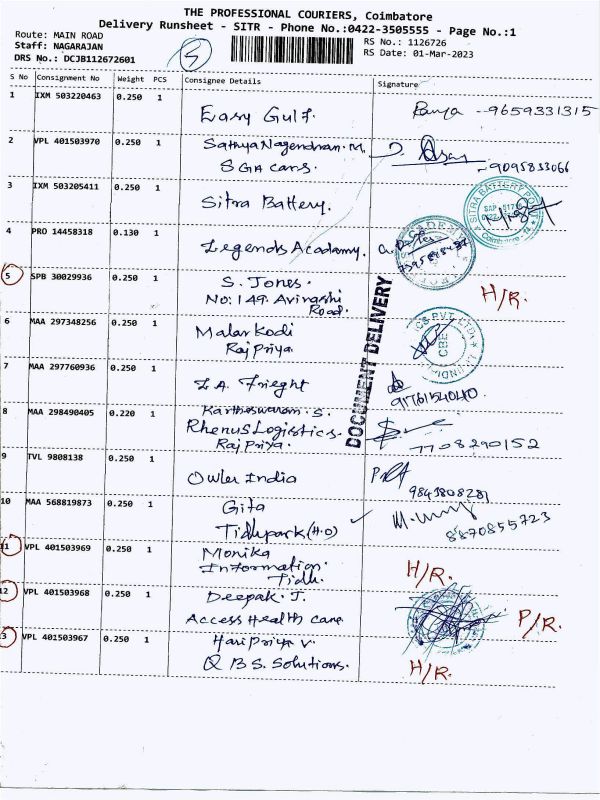 THE PROFESSIONAL COURIERS, Coimbatore
Delivery Runsheet - SITR - Phone No.:0422-3505555 - Page No.:1
Route: MAIN ROAD
Staff: NAGARAJAN
DRS No.: DCJB112672601
RS No.: 1126726
RS Date: 01-Mar-2023
S No Consignment No Weight PCS Consignee Details Signature
1 IXM 503220463 0.250 1 Easy Gulf. Ramya - 9659331315
2 VPL 401503970 0.250 1 Sathya Nagendran. M.
SGA cars. 9095833066
3 IXM 503205411 0.250 1 Sitra Battery.
SITRA BATTERY POINT
Coimbatore - 14
4 PRO 14458318 0.130 1 Legends Acadamy.
5 SPB 30029936 0.250 1 S. Jones. H/R.
No: 149 Avinashi
Road.
6 MAA 297348256 0.250 1 Malarkodi
Rajpriya
CBE
7 MAA 297760936 0.250 1 L.A. Frieght
DOCUMENT DELIVERY
8 MAA 298490405 0.220 1 Kartheswaran S.
Rhenus Logistics. 7708290152
Rajpriya.
9 TVL 9808138 0.250 1 Owler India
9843808281
10 MAA 568819873 0.250 1 Gita
Tidlpark (H.O) 8870855723
11 VPL 401503969 0.250 1 Monika
Information. H/R.
Tidl.
12 VPL 401503968 0.250 1 Deepak. J.
Access Health care P/R.
13 VPL 401503967 0.250 1 Haripriya v.
Q B S. Solutions. H/R.